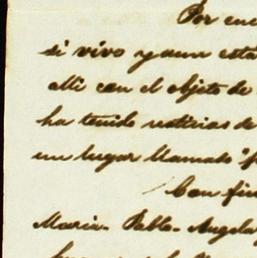 Por en
si vivo y aun esta
Alli con el objeto de
ha tenido noticias de
un lugar llamado "
Con fi
Maria - Pablo - Angela